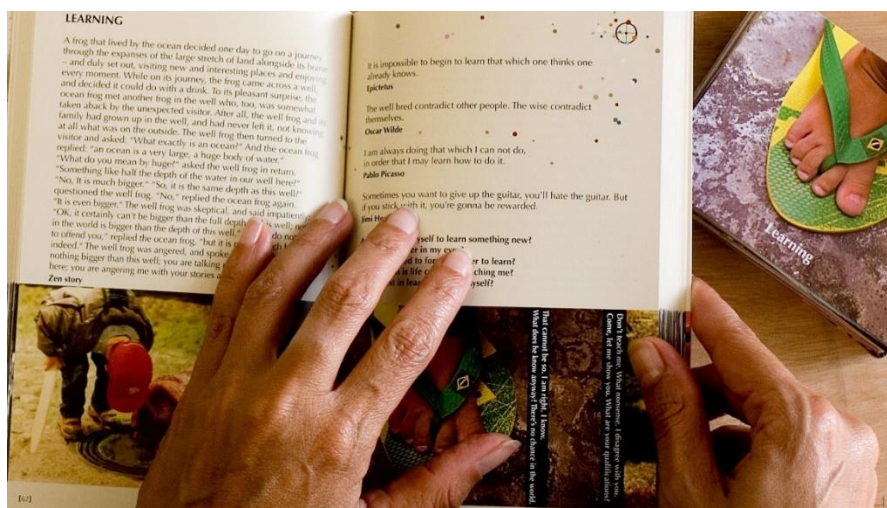 LEARNING
A frog that lived by the ocean decided one day to go on a journey
through the expanses of the large stretch of land alongside its home
– and duly set out, visiting new and interesting places and enjoying
every moment. While on its journey, the frog came across a well,
and decided it could do with a drink. To its pleasant surprise, the
ocean frog met another frog in the well who, too, was somewhat
taken aback by the unexpected visitor. After all, the well frog and its
family had grown up in the well, and had never left it, not knowing
at all what was on the outside. The well frog then turned to the
visitor and asked: "What exactly is an ocean?" And the ocean frog
replied: "an ocean is a very large, a huge body of water."
"What do you mean by huge?" asked the well frog in return.
"Something like half the depth of the water in our well here?"
"No, It is much bigger." "So, it is the same depth as this well?"
questioned the well frog. "No," replied the ocean frog again.
"It is even bigger." The well frog was skeptical, and said impatiently
"OK, it certainly can't be bigger than the full depth this well;
in the world is bigger than the depth of this well." do not
to offend you," replied the ocean frog, "but it is
indeed." The well frog was angered, and spoke
nothing bigger than this well; you are talking
here; you are angering me with your stories
Zen story
[62]
It is impossible to begin to learn that which one thinks one
already knows.
Epictetus
The well bred contradict other people. The wise contradict
themselves.
Oscar Wilde
I am always doing that which I can not do,
in order that I may learn how to do it.
Pablo Picasso
Sometimes you want to give up the guitar, you'll hate the guitar. But
if you stick with it, you're gonna be rewarded.
Jimi
myself to learn something new?
in my
to learn?
is life teaching me?
in myself?
That cannot be so. I am right. I know.
What does he know anyway? There's no chance in the world.
Don't teach me. What nonsense. I disagree with you.
Come, let me show you. What are your qualifications?
Learning